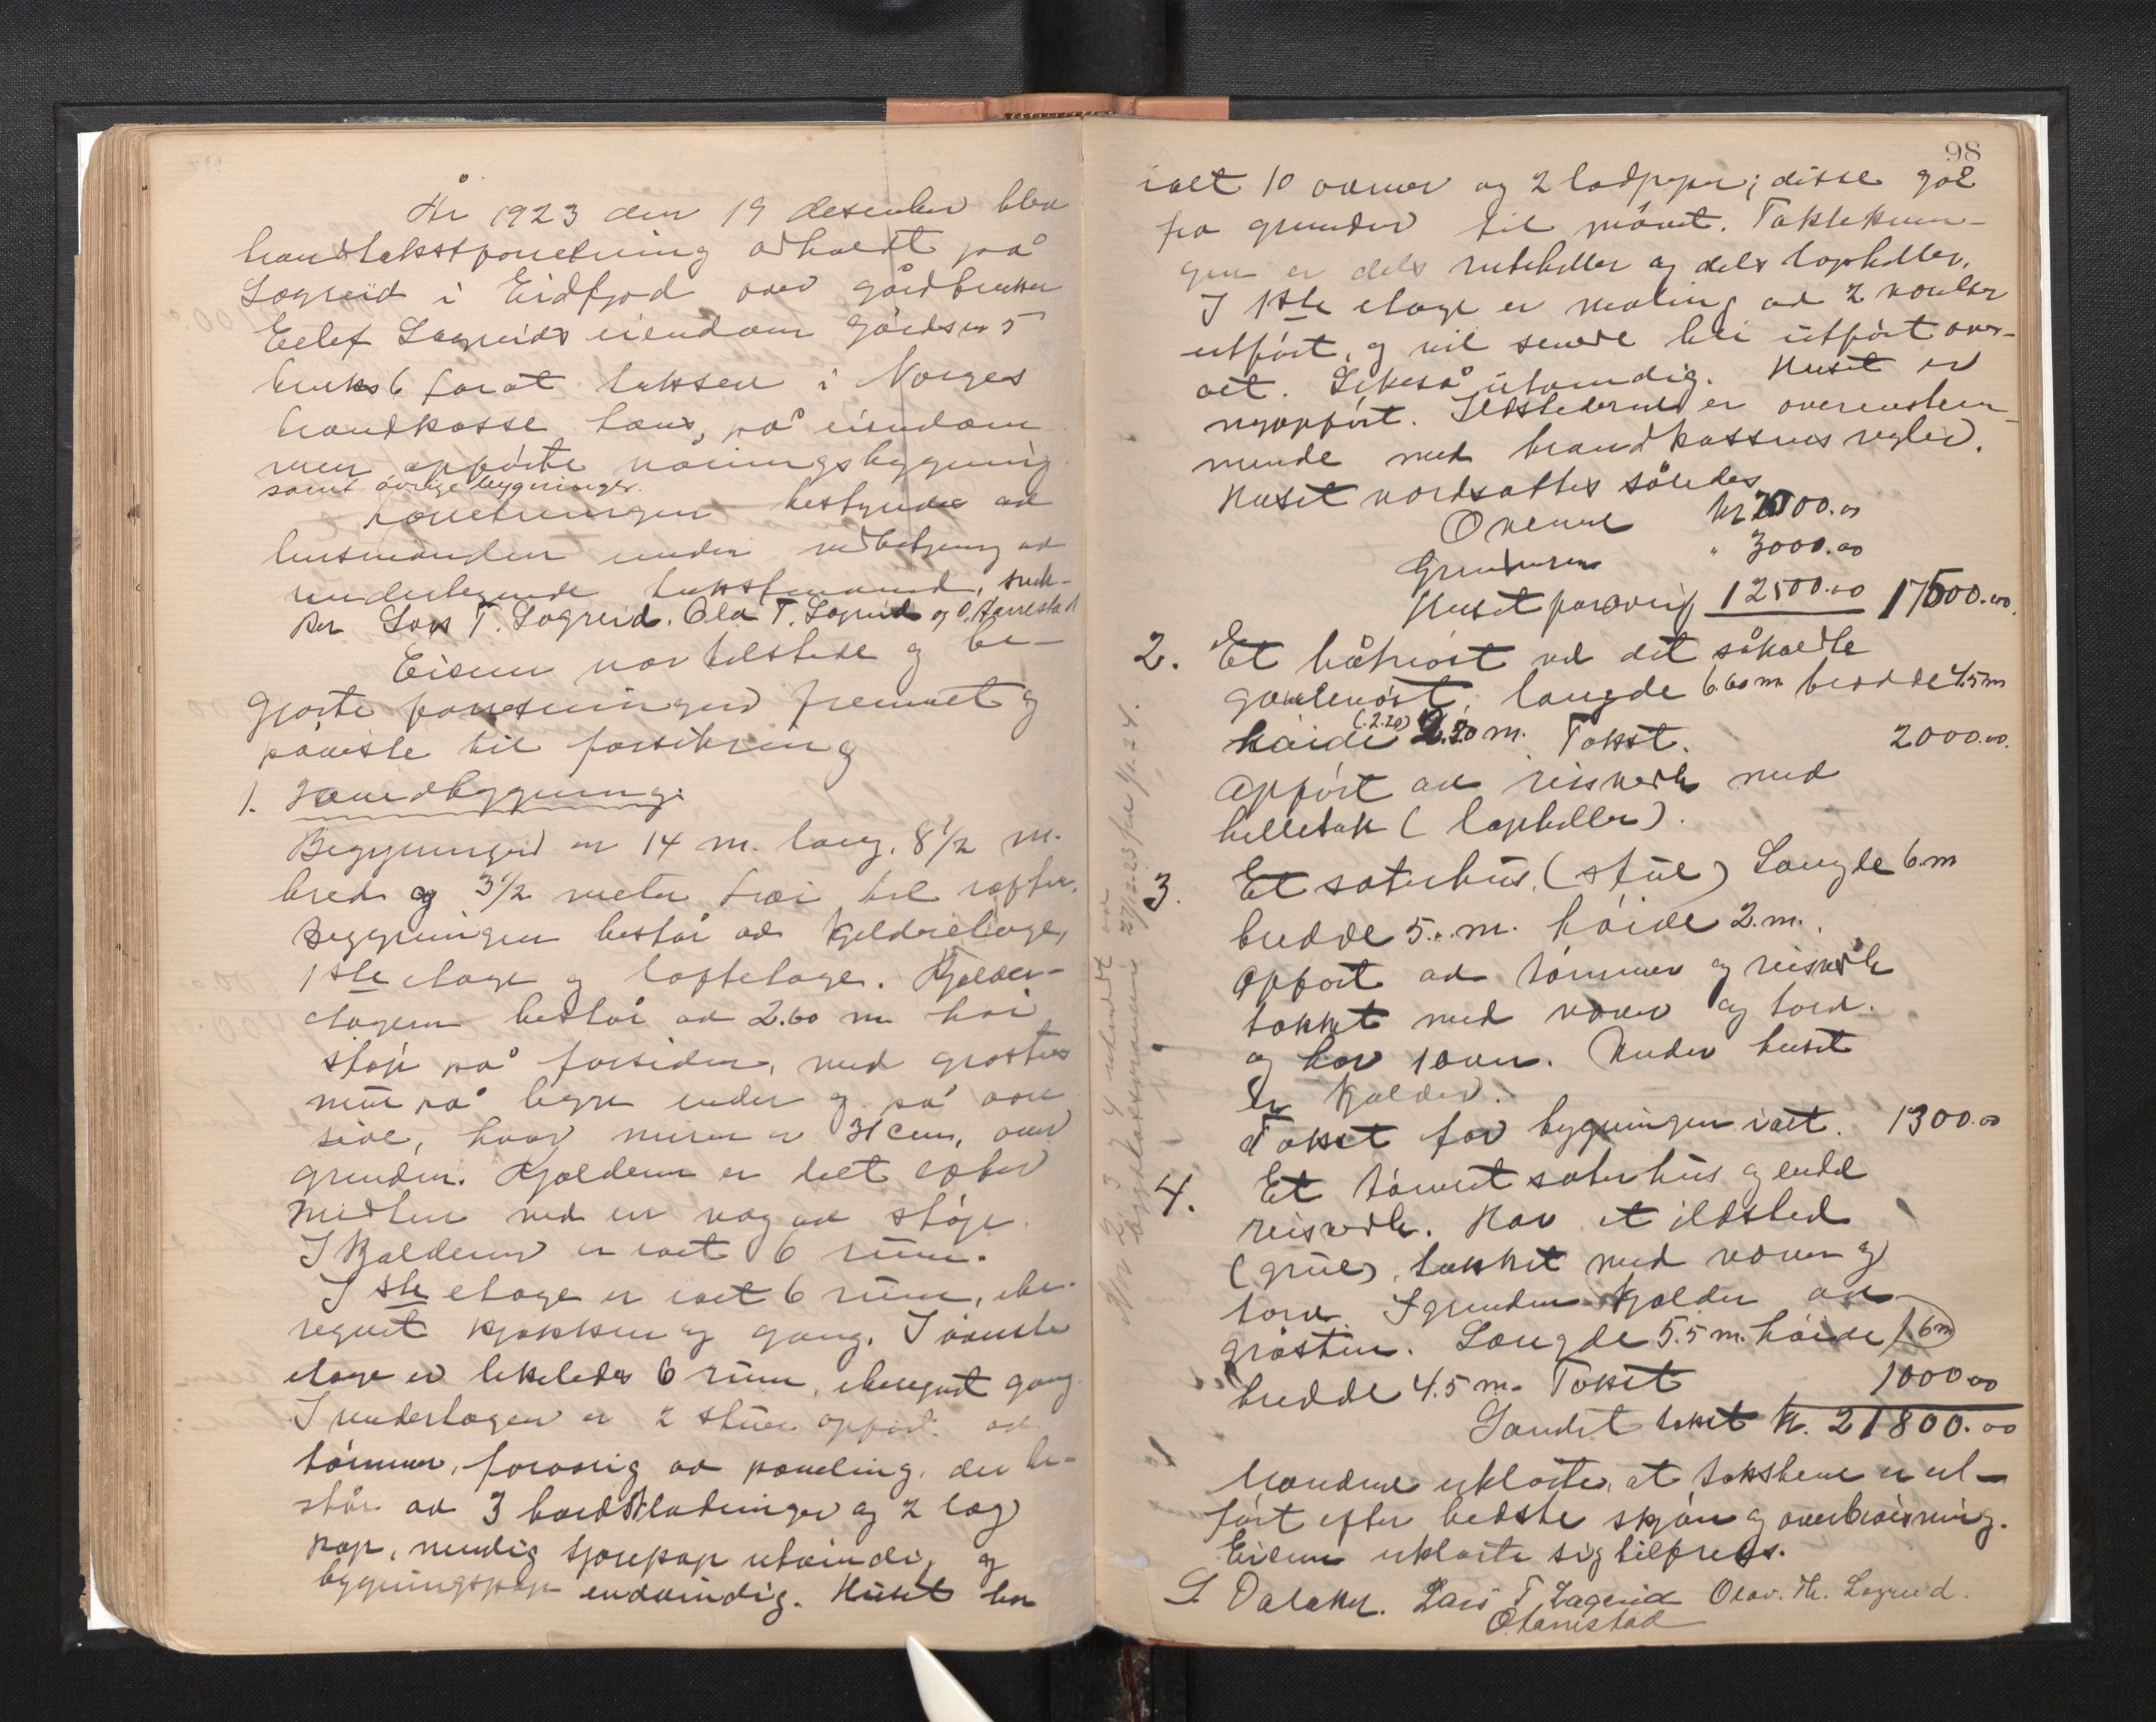 År 1923 den 19 desember blev
brandtakstforretning avholdt på
Sægreid i Eidfjord over gårdbruker
Eelef Sægreids eiendom gårdsnr 5
bruks 6 forat taksere i Norges
brandkasse hans, på eiendom
men opførte våningsbygning
samt øvrige bygninger.
Forretningen bestyredes av
lensmanden under
underlegnede takstmænd, snek-
ker Lars T. Sægreid. Ola T. Sægreid og O. Harrestad
Eieren var tilstede og be-
gjærte forretningen fremmet og
påviste til forsikring
1. Våaedbygning.
Bygningen er 14 m. lang, 8 1/2 m.
bred og 3 1/2 meter høi til røfter.
Bygningen består av kjelderetage,
1ste etage og loftetage. Kjelder-
etagen består av 2.60 m høi
støp på forsiden, med gråstens
mur på begge ender og på øvre
side, hvor muren er 31 cm. over
grunden. Kjelderen er delt efter
midten med en væg av støp.
I kjelderen er ialt 6 rum.
I 1ste etage er ialt 6 rum, ibe-
regnet kjøkken og gang. I øverste
etage er likeledes 6 rum, iberegnet gang.
I underetagen er 2 stuer opført av
tømmer, forøvrig av paneling, der be-
står av 3 bordkledninger og 2 lag
pap, nemlig tjærepap utvendig og
bygningspap indvendig. Huset har
98
ialt 10 ovner og 2 lodpiper; disse går
fra grunden til mønet. Taktekkin-
gen er dels ruteheller og dels lapheller.
I 1ste etage er maling av 2 værelser
utført, og vil senere bli utført over-
alt. Likeså utvendig. Huset er
nyopført. Ildstederne er overenstem-
mende med brandkassens regler.
Huset værdsættes således
Ovnene kr 2000.00
Grunmuren " 3000.00
Huset forøvrig 12500.00 17500.00.
2. Et båtnøst ved det såkaldte
gamlenøst, længde 6.60 m bredde 4.5 m
høide (2.20) 2.20 m. Takst. 2000.00.
Opført av reisverk med
helletak (lapheller).
3. Et sæterhus (støl) Længde 6 m
bredde 5. m. høide 2. m.
Opført av tømmer og reisverk
tækket med næver og torv.
og har 1 ovn. Under huset
er kjelder.
Takst for bygningen ialt. 1300.00
4. Et tømret sæterhus og endel
reisverk. Har et ildsted
(grue), tækket med næver og
torv. I grunden kjelder av
gråsten. Længde 5.5 m. høide 1.6 m
bredde 4.5 m. Takst 1000.00
Samlet takst kr. 21800.00
Mændene erklærte, at taksterne er ut-
ført efter bedste skjøn og overbevisning.
Eieren erklærte sig tilfreds.
S. Dalaker. Lars T Sægreid Olav. Th. Sægreid.
O Harrestad